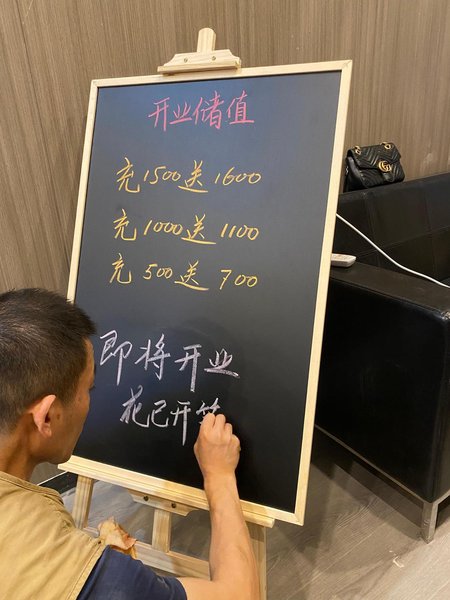 开业储值
充1500送1600
充1000送1100
充 500送 700
即将开业
花已开